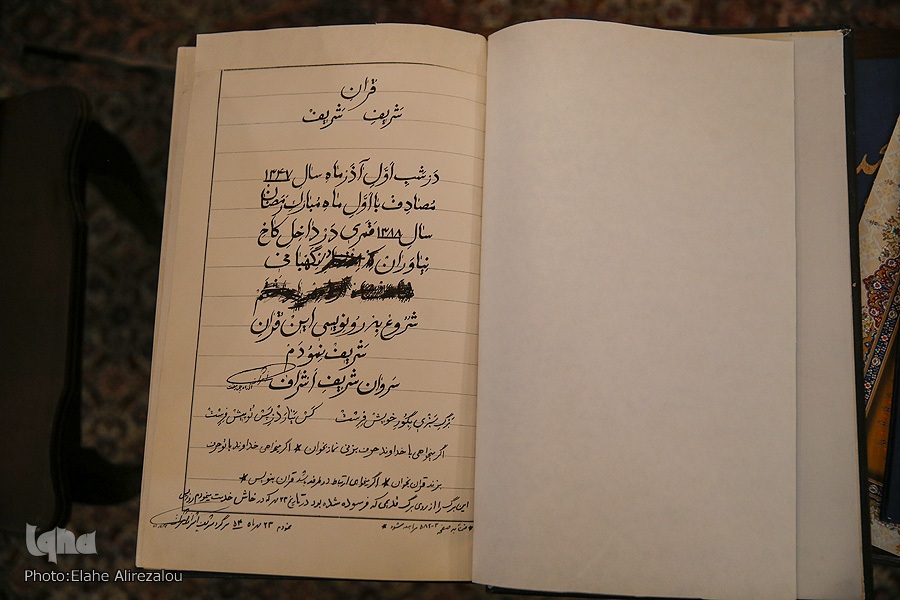 قرآن
شریف شریف
در شب اول آذرماه سال ۱۳۴۷
مصادف با اول ماه مبارک رمضان
سال ۱۳۸۸ قمری در داخل کاخ
نیاوران نگهبانی
شروع به رونویسی این قرآن
شریف نمودم
سروان شریف اشراف
برگ سبزی بگور خویش فرست کس نیارد ز پس تو پیش فرست
اگر بخواهی با خداوند حرف بزنی نماز بخوان * اگر بخواهی خداوند با تو حرف
بزند قرآن بخوان * اگر بخواهی ارتباط دو طرفه باشد قرآن بنویس *
این برگ را از روی برگ قدیمی که فرسوده شده بود در تاریخ ۲۳ مهر که در خاش خدمت
نمودم ۲۳ مهرماه ۵۴ سرگرد * به صفحه ۵۸۹۰۲ مراجعه شود *
iqna
Photo:Elahe Alirezalou